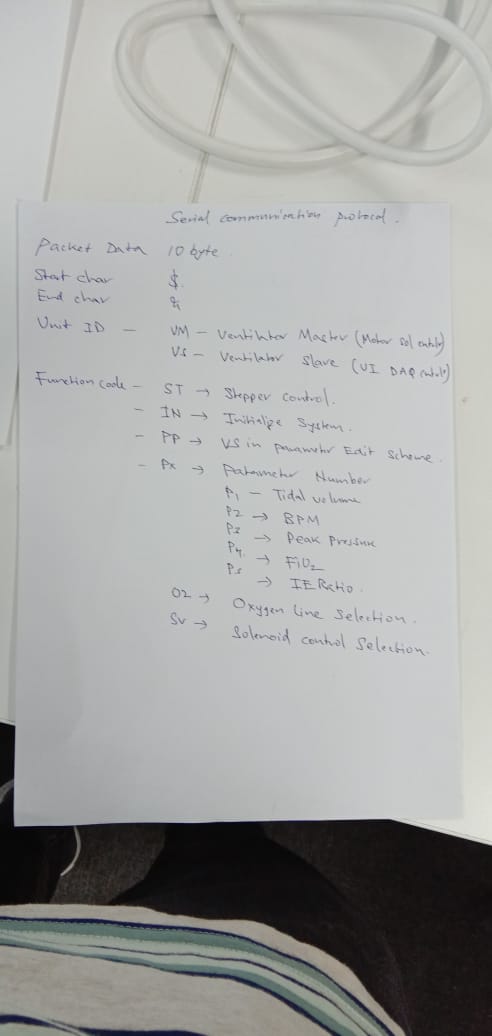 Serial communication protocol.
Packet Data 10 byte
Start char $.
End char &
Unit ID - VM - Ventilator Master (Motor sol
VS - Ventilator Slave (UI DAQ
Function code - ST → Stepper control.
- IN → Initialize System.
- PP → VS in parameter Edit Scheme.
- Px → Parameter Number
P1 - Tidal volume
P2 → BPM
P3 → Peak Pressure
P4 → FiO2
P5 → IE Ratio.
O2 → Oxygen line selection.
SV → Solenoid control Selection.